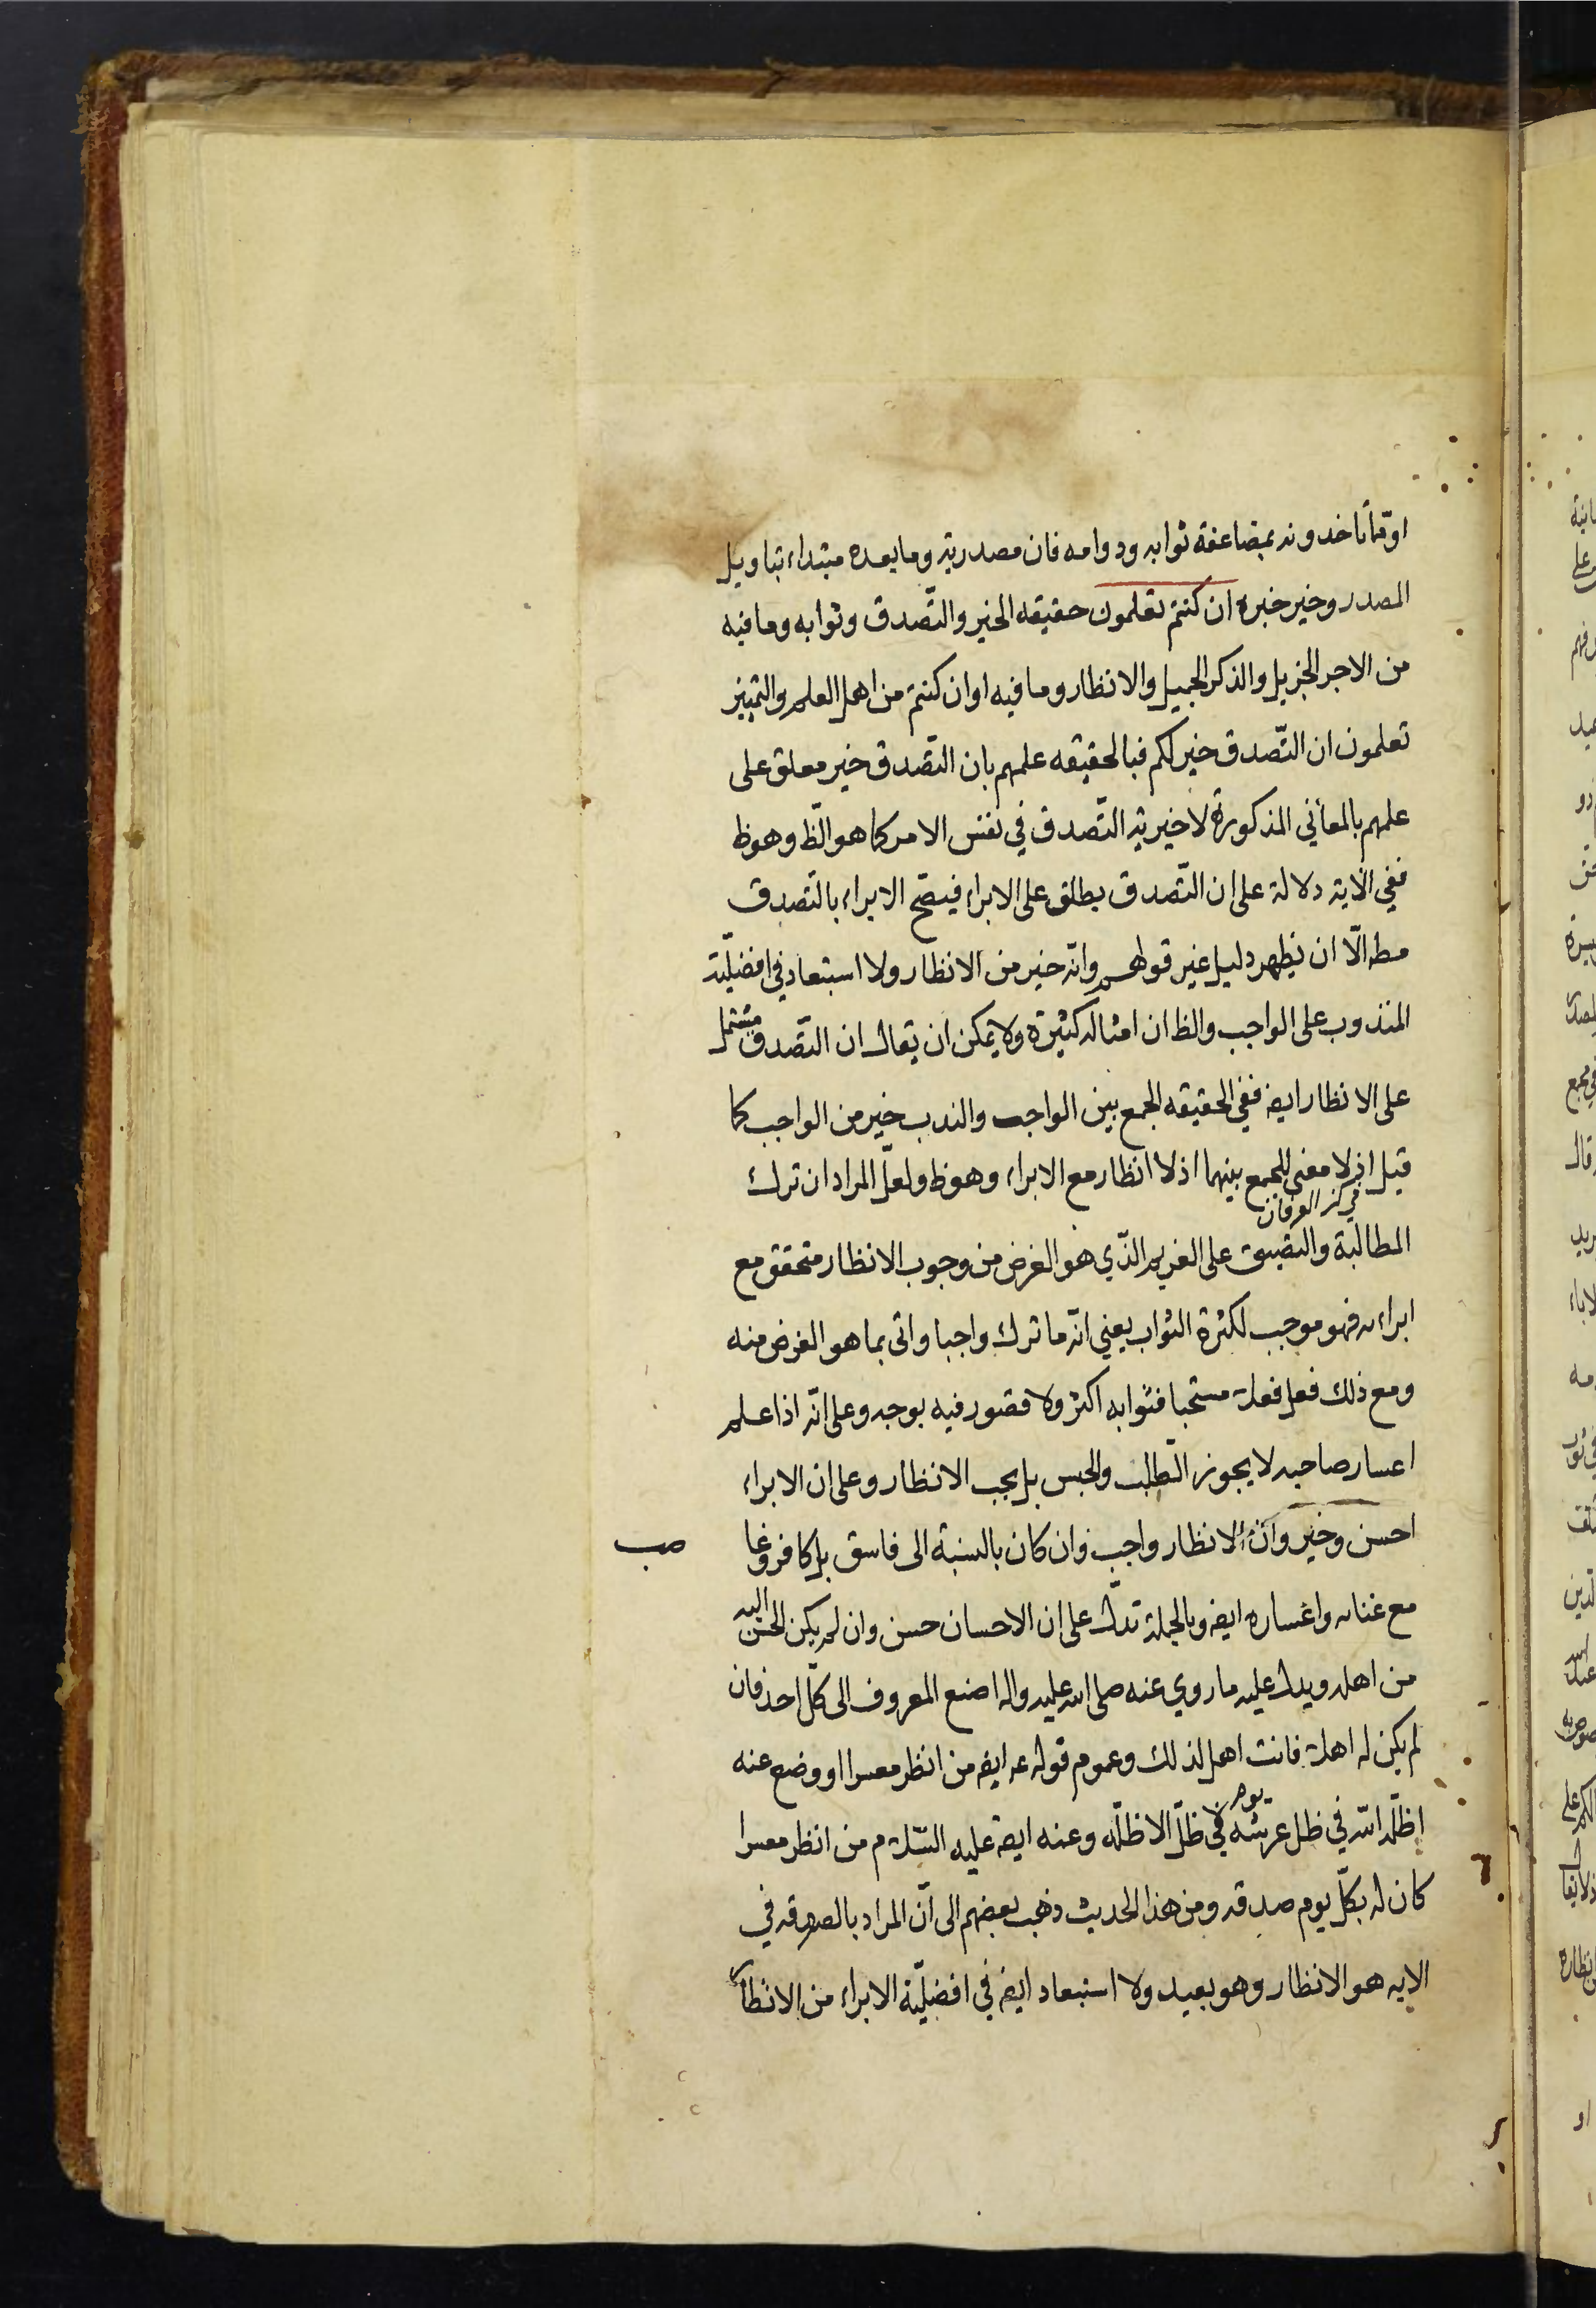 او مما تاخدونه بمضاعفة ثوابه ودوامه فان مصدرية وما بعده مبتداء بتاويل
المصدر وخير خبره ان كنتم تعلمون حقيقه الخير والتّصدق وثوابه وما فيه
من الاجر الجزيل والذكر الجميل والانظار وما فيه او ان كنتم من اهل العلم والتميز
تعلمون ان التّصدق خير لكم فبالحقيقه علمهم بان التّصدق خير معلق على
علمهم بالمعاني المذكورة لا خيرية التّصدق في نفس الامر كما هو الظ وهو ظ
ففي الاية دلالة على ان التّصدق يطلق على الابراء فيصّح الابراء بالتّصدق
مطه الّا ان يظهر دليل غير قولهم وانّه خير من الانظار ولا استبعاد في افضليّة
المندوب على الواجب والظ ان امثاله كثيرة ولا يمكن ان يقال ان التّصدق مشتمل
على الانظار ايضا ففي الحقيقه الجمع بين الواجب والندب خير من الواجب كما
قيل اذ لا معنى للجمع بينهما اذ لا انظار مع الابراء وهو ظ ولعلّ المراد ان ترك
في كنز العرفان
المطالبة والتضييق على الغريم الذّي هو الغرض من وجوب الانظار متحقق مع
ابراءه فهو موجب لكثرة الثواب يعني انّه ما ترك واجبا واتى بما هو الغرض منه
ومع ذلك فعل فعلا مستحبا فثوابه اكثر ولا قصور فيه بوجه وعلى انّه اذا علم
اعسار صاحبه لا يجوز الطّلب والحبس بل يجب الانظار وعلى ان الابراء
احسن وخير وانّ الانظار واجب وان كان بالنسبة الى فاسق بل كافر
مع غناه واعساره ايضا وبالجملة تدلّ على ان الاحسان حسن وان لم يكن المحسن اليه
من اهله ويدل عليه ما روي عنه صلى الله عليه واله اصنع المعروف الى كلّ احد فان
لم يكن له اهلا فانت اهل لذلك وعموم قوله ع ايضا من انظر معسرا او وضع عنه
اظلّه الله في ظل عرشه يوم لا ظلّ الا ظلّه وعنه ايضا عليه السّلام من انظر معسرا
كان له بكلّ يوم صدقه ومن هذا الحديث ذهب بعضهم الى انّ المراد بالصدقه في
الايه هو الانظار وهو بعيد ولا استبعاد ايضا في افضليّة الابراء من الانظار